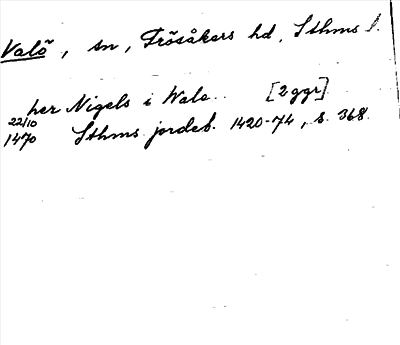 Valö, sn, Frösåkers hd, Sthms l.
her Nigels i Wale.. [2 ggr]
22/10
1470 Sthms jordeb. 1420-74, s. 368.